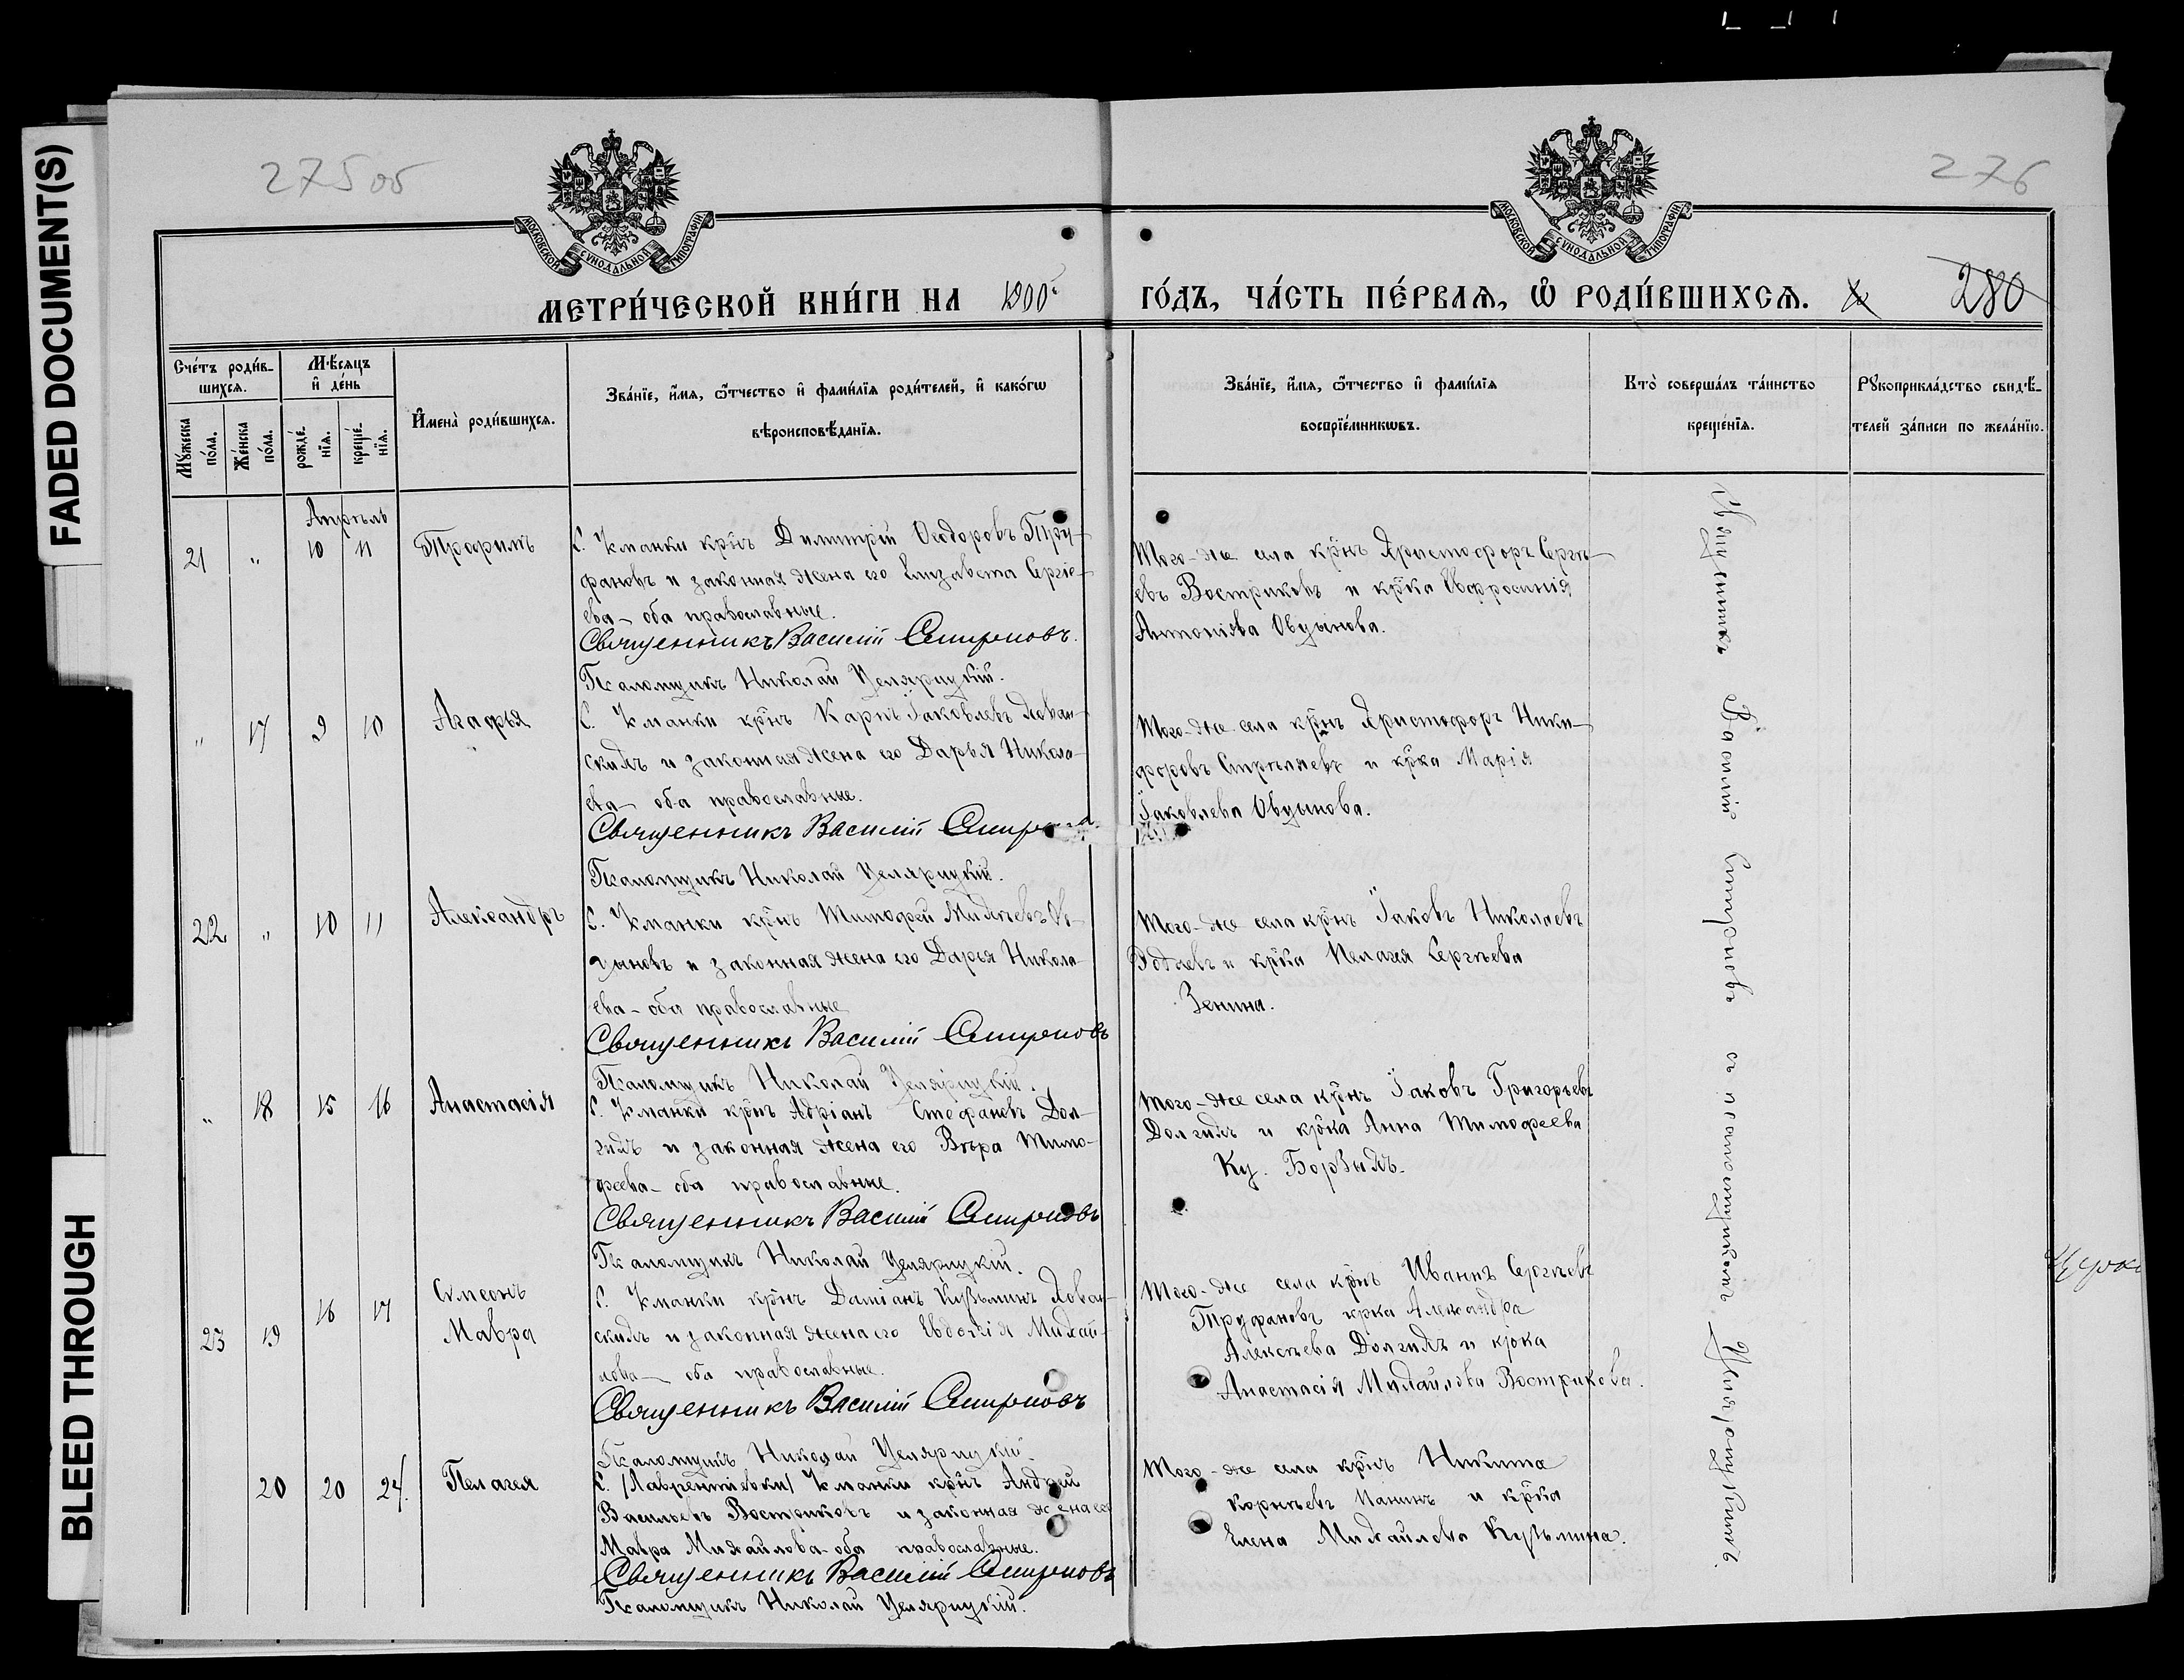 FADED DOCUMENT(S)
BLEED THROUGH
275 об
276
МОСКОВСКОЙ СѴНОДАЛЬНОЙ ТИПОГРАФІИ
МОСКОВСКОЙ СѴНОДАЛЬНОЙ ТИПОГРАФІИ
МЕТРИ́ЧЕСКОЙ КНИ́ГИ НА 1900й ГО́ДЪ, ЧА́СТЬ ПЕ́РВАѦ, Ѽ РОДИ́ВШИХСѦ. 280
Сче́тъ роди́в-
шихсѧ.
Мѣсѧцъ
и҆ де́нь
Му́жеска
по́ла.
Же́нска
по́ла.
рожде́-
нїѧ.
креще́-
нїѧ.
И҆мена̀ роди́вшихсѧ.
Зва́нїе, и҆́мѧ, ѻ҆́тчество и҆ фами́лїѧ роди́телей, и҆ како́гѡ
вѣроисповѣ́данїѧ.
Зва́нїе, и҆́мѧ, ѻ҆́тчество и҆ фами́лїѧ
воспрїе́мникѡвъ.
Кто̀ соверша́лъ та́инство
креще́нїѧ.
Рꙋкоприкла́дство свидѣ́-
телей за́писи по жела́нїю.
Апрѣль
21 " 10 11 Трофимъ
С. Уманки крнъ Димитрій Ѳеодоровъ Тру-
фановъ и законная жена его Елизавета Сергіе-
ева – оба православные.
Священникъ Василій Смирновъ.
Псаломщикъ Николай Целярицкій.
Того-же села крнъ Христофоръ Сергѣ-
евъ Востриковъ и крка Евфросинія
Антоніева Овцынова.
" 17 9 10 Агафья
С. Уманки крнъ Карпъ Іаковлевъ Хован-
скихъ и законная жена его Дарья Никола-
ева – оба православные.
Священникъ Василій
Псаломщикъ Николай Целярицкій.
Того-же села крнъ Христофоръ Ники-
форовъ Стрѣляевъ и крка Марія
Іаковлева Овцынова.
22 " 10 11 Александръ
С. Уманки крнъ Тимофей Михѣевъ Ов-
цыновъ и законная жена его Дарья Никола-
ева – оба православные
Священникъ Василій Смирновъ
Псаломщикъ Николай Целярицкій.
Того-же села крнъ Іаковъ Николаевъ
и крка Пелагея Сергѣева
Зенина.
" 18 15 16 Анастасія
С. Уманки крнъ Адріанъ Стефановъ Дол-
гихъ и законная жена его Вѣра Тимо-
феева – оба православные.
Священникъ Василій Смирновъ
Псаломщикъ Николай Целярицкій.
Того-же села крнъ Іаковъ Григорьевъ
Долгихъ и крка Анна Тимофеева
Ку. Борзыхъ.
23 19 16 17 Симеонъ
Мавра
С. Уманки крнъ Даміанъ Кузьминъ Хован-
скихъ и законная жена его Евдокія Михай-
лова – оба православные.
Священникъ Василій Смирновъ
Псаломщикъ Николай Целярицкій.
Того-же села крнъ Иванъ Сергѣевъ
Труфановъ крка Александра
Алексѣева Долгихъ и крка
Анастасія Михайлова Вострикова.
20 20 24. Пелагея
С. (Лаврентіевки) Уманки крнъ Андрей
Васильевъ Востриковъ и законная жена его
Мавра Михайлова – оба православные.
Священникъ Василій Смирновъ
Псаломщикъ Николай Целярицкій.
Того-же села крнъ Никита
Корнѣевъ Панинъ и крка
Елена Михайлова Кузьмина.
Священникъ Василій Смирновъ съ псаломщикомъ Целярицкимъ.